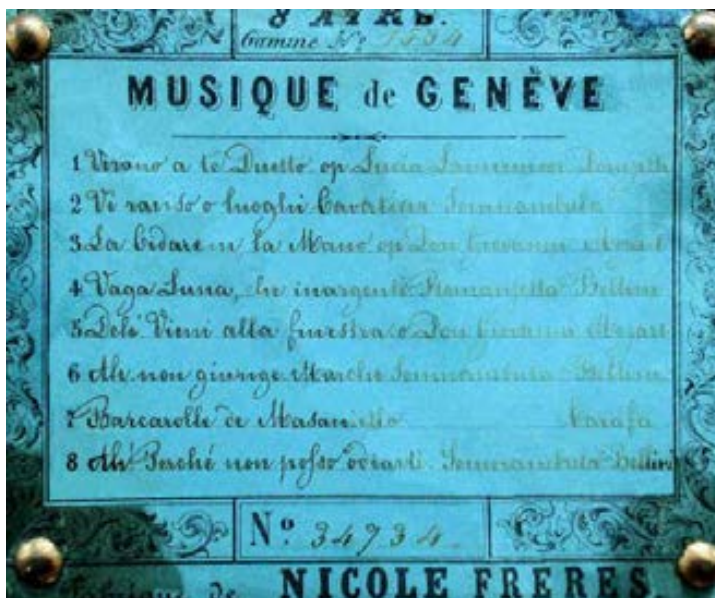 8 AIRS.
Gamme No
MUSIQUE de GENÈVE
1 Verano a te Duetto op Lucia
2 Vi raviso o luoghi Cavatina Sonnambula
3 La Cidarem la Mano op Don Giovanni Mozart
4 Vaga Luna, che inargente Romanzetta Bellini
5 Deh! Vieni alla finestra o Don Giovanni Mozart
6 Ah non giunge Marche Sonnambula Bellini
7 Barcarolle de Masaniello Carafa
8 Ah! Perché non posso odiarti Bellini
No 34734
Fabrique de NICOLE FRERES.